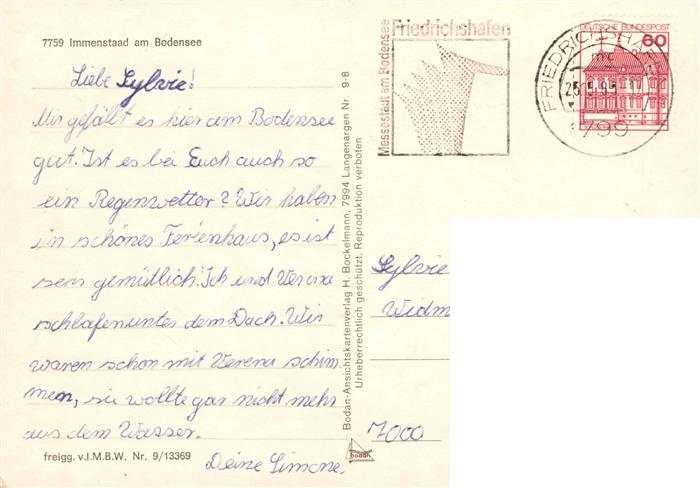 7759 Immenstaad am Bodensee
Liebe Sylvie!
Mir gefällt es hier am Bodensee
gut. Ist es bei Euch auch so
ein Regenwetter? Wir haben
ein schönes Ferienhaus, es ist
sein gemütlich. Ich und Verena
schlafen unter dem Dach. Wir
waren schon mit Verena schim-
men, sie wollte gar nicht mehr
aus dem Wasser.
Deine Simone.
freigg. v.I.M.B.W. Nr. 9/13369
Bodan-Ansichtskartenverlag H. Bockelmann, 7994 Langenargen Nr. 9-8
Urheberrechtlich geschützt. Reproduktion verboten
bodan
Messestadt am Bodensee
Friedrichshafen
FRIEDRICHSHAFEN
mc
799
DEUTSCHE BUNDESPOST
60
Sylvie
Widm
7000